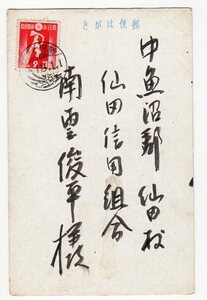 きがは便郵
中魚沼郡 仙田村
仙田信用組合
南雲俊平様